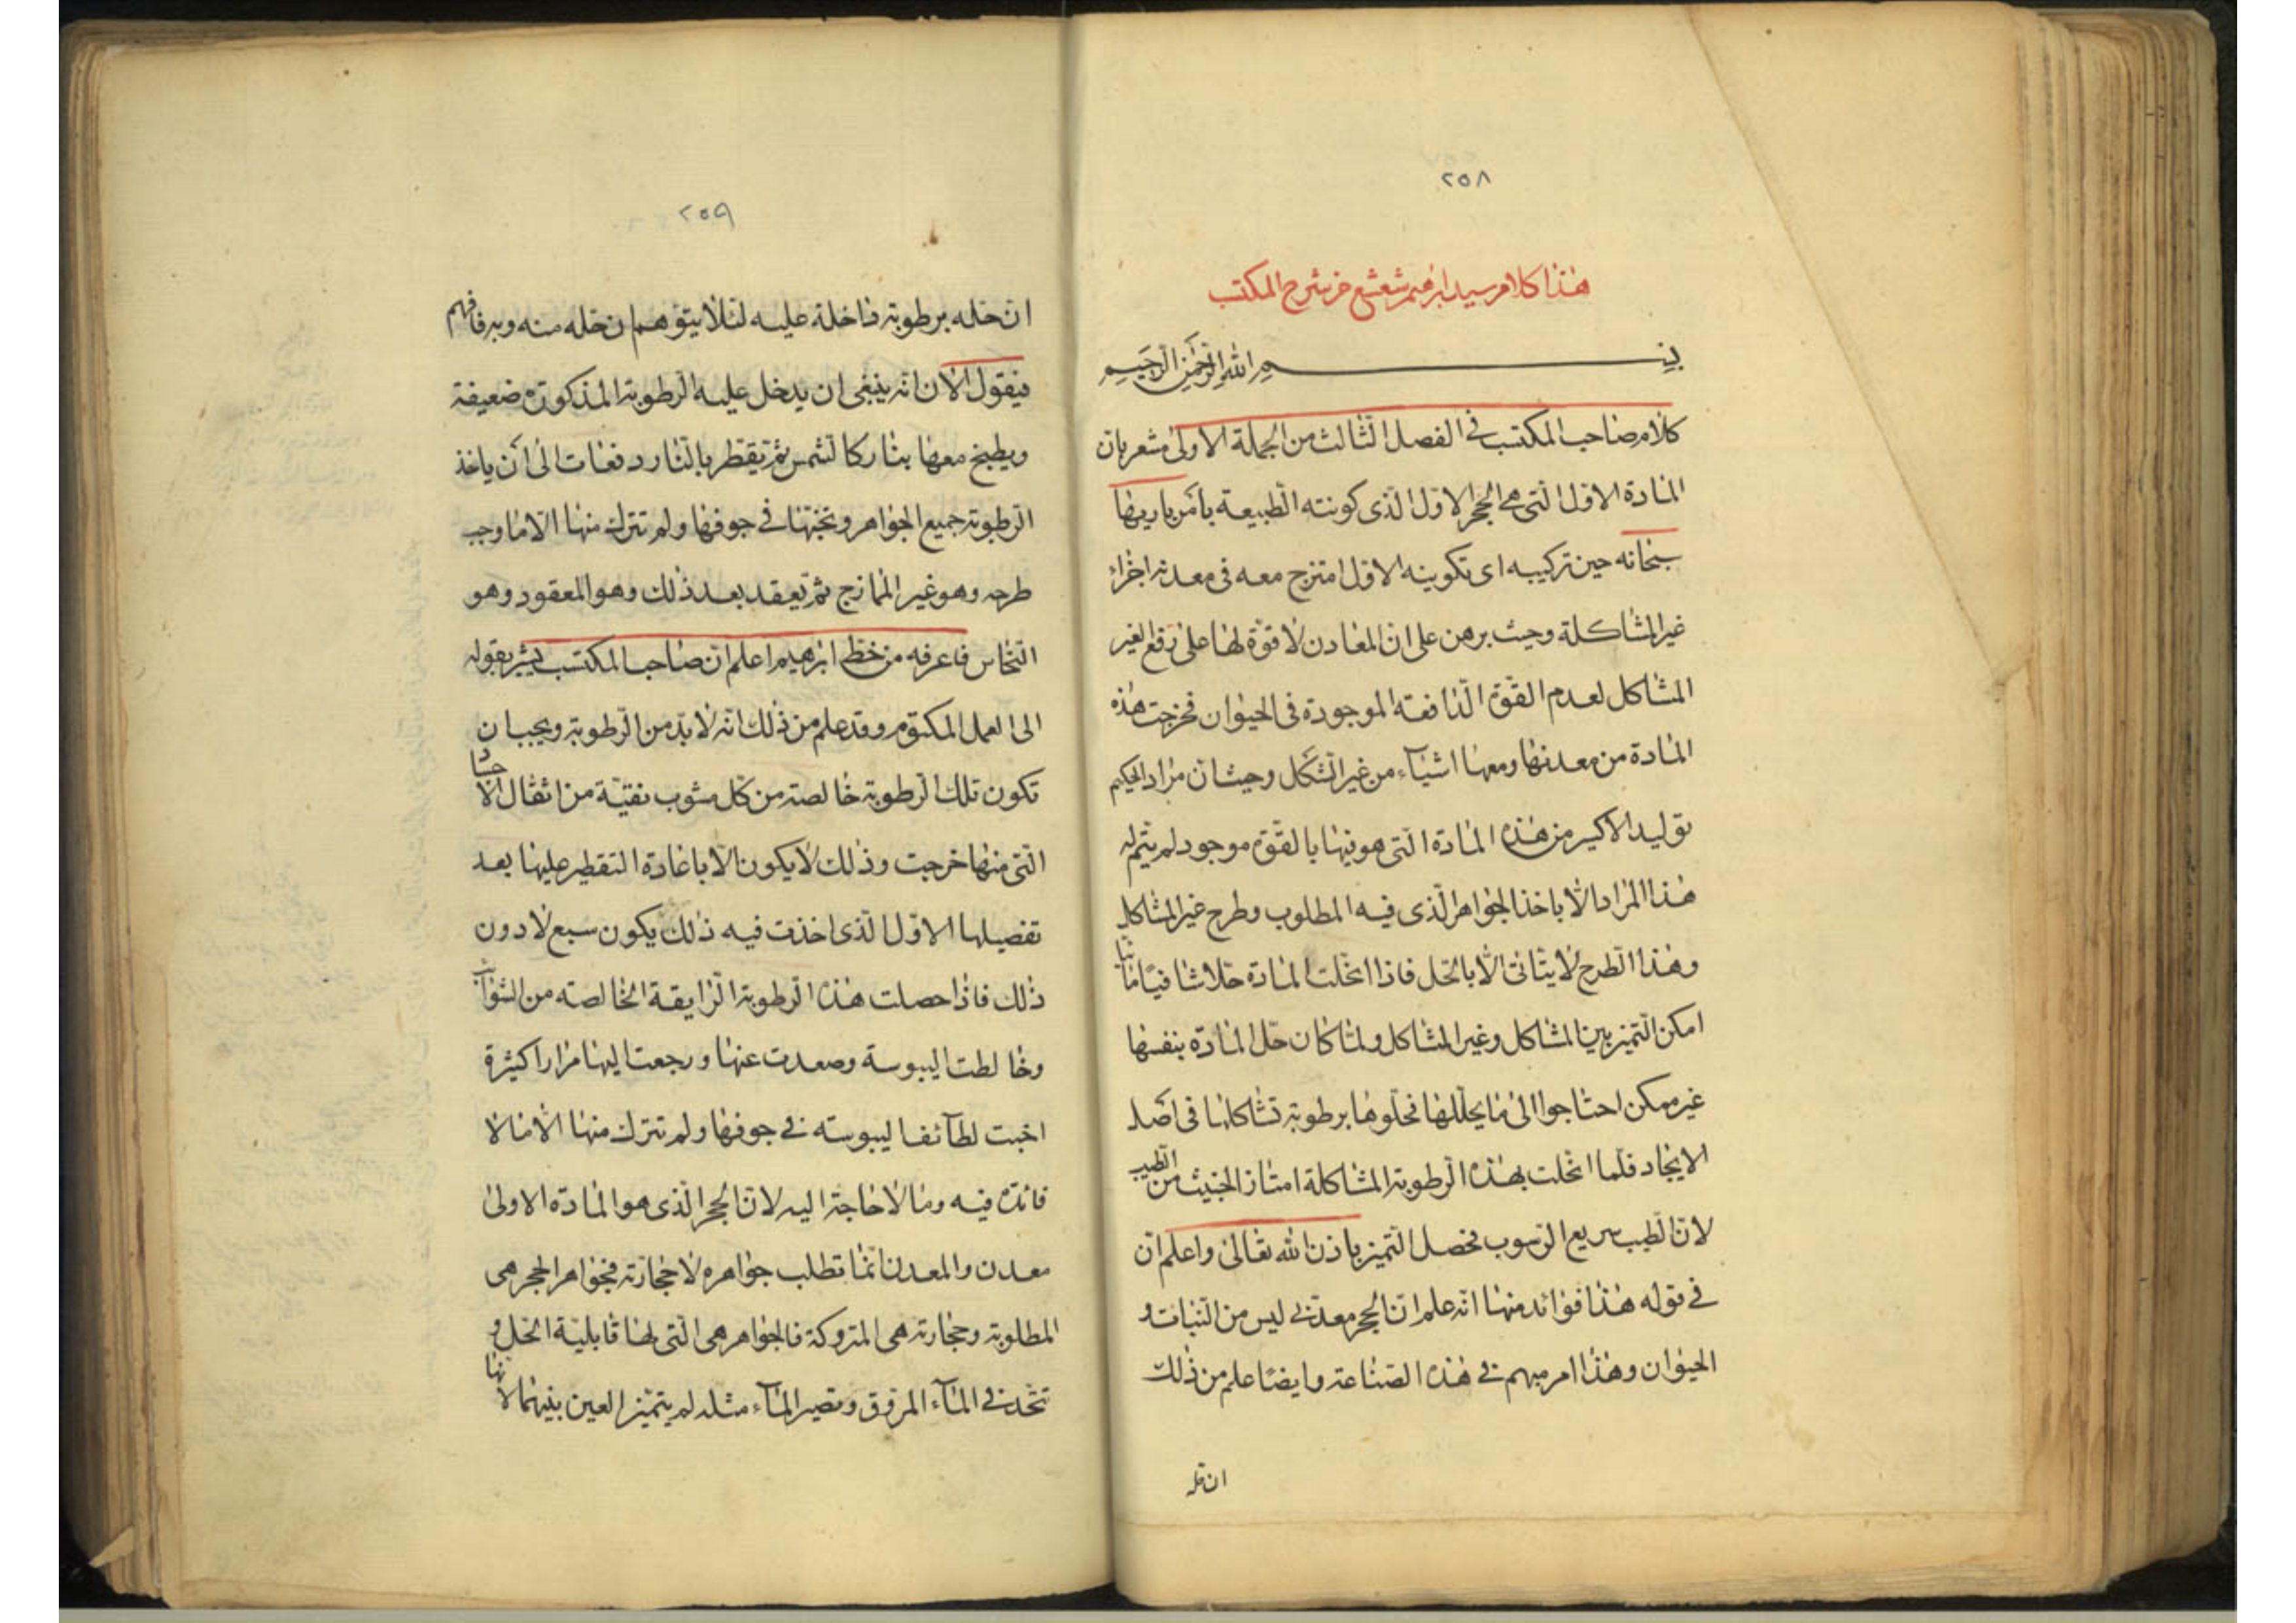 ٢٥٨
هذا كلام سيد ابرهيم شعشع من شرح المكتب
بسم الله الرحمن الرحيم
كلام صاحب المكتسب فى الفصل الثالث من الجملة الاولى مشعر بان
المادة الاول التى هى الحجر الاول الذى كونته الطبيعة بامر باريها
سبحانه حين تركيبه اى تكوينه الاول امتزج معه فى معدنه اجزاء
غير المشاكلة وحيث برهن على ان المعادن لا قوة لها على دفع الغير
المشاكل لعدم القوة الدافعة الموجودة فى الحيوان فخرجت هذه
المادة من معدنها ومعها اشياء من غير الشكل وحيث ان مراد الحكيم
توليد الاكسير من هذه المادة التى هو فيها بالقوة موجود لم يتم له
هذا المراد الا باخذ الجواهر الذى فيه المطلوب وطرح غير المشاكل
وهذا الطرح لا يتاتى الا بالحل فاذا انحلت المادة حلا شافيا
امكن التميز بين المشاكل وغير المشاكل ولما كان حل المادة بنفسها
غير ممكن احتاجوا الى ما يحللها فحلوها برطوبة تشاكلها فى اصل
الايجاد فلما انحلت بهذه الرطوبة المشاكلة امتاز الخبيث من الطيب
لان الطيب سريع الرسوب فحصل التميز باذن الله تعالى واعلم ان
في قوله هذا فوائد منها انه علم ان الحجر معدنى ليس من النبات و
الحيوان وهذا امر مبهم في هذه الصناعة وايضا علم من ذلك
ان حله
٢٥٩
ان حله برطوبة داخلة عليه لئلا يتوهم ان حله منه وبه فافهم
فيقول الان انه ينبغى ان يدخل عليه الرطوبة المذكورة ضعيفة
ويطبخ معها بنار كالشمس ثم يقطر بالنار دفعات الى ان ياخذ
الرطوبة جميع الجواهر وتخبئها في جوفها ولم تترك منها الا ما وجب
طرحه وهو غير الممازج ثم يعقد بعد ذلك وهو المعقود وهو
النحاس فاعرفه من خط ابرهيم اعلم ان صاحب المكتسب يشير بقوله
الى العمل المكتوم وقد علم من ذلك انه لا بد من الرطوبة ويجب ان
تكون تلك الرطوبة خالصة من كل مشوب نقية من اثقال الاجساد
التى منها خرجت وذلك لا يكون الا باعادة التقطير عليها بعد
تفصيلها الاول الذى اخذت فيه ذلك يكون سبع لا دون
ذلك فاذا حصلت هذه الرطوبة الرايقة الخالصة من الشوائب
وخالطت اليبوسة وصعدت عنها ورجعت اليها مرارا كثيرة
اخبت لطائف اليبوسة في جوفها ولم تترك منها الا ما لا
فائدة فيه وما لا حاجة اليه لان الحجر الذى هو المادة الاولى
معدن والمعدن انما تطلب جواهره لا حجارته فجواهر الحجر هى
المطلوبة وحجارته هى المتروكة فالجواهر هى التى لها قابلية الحل و
تتحد في الماء المروق وتصير الماء مثله لم يتميز العين بينهما لانها